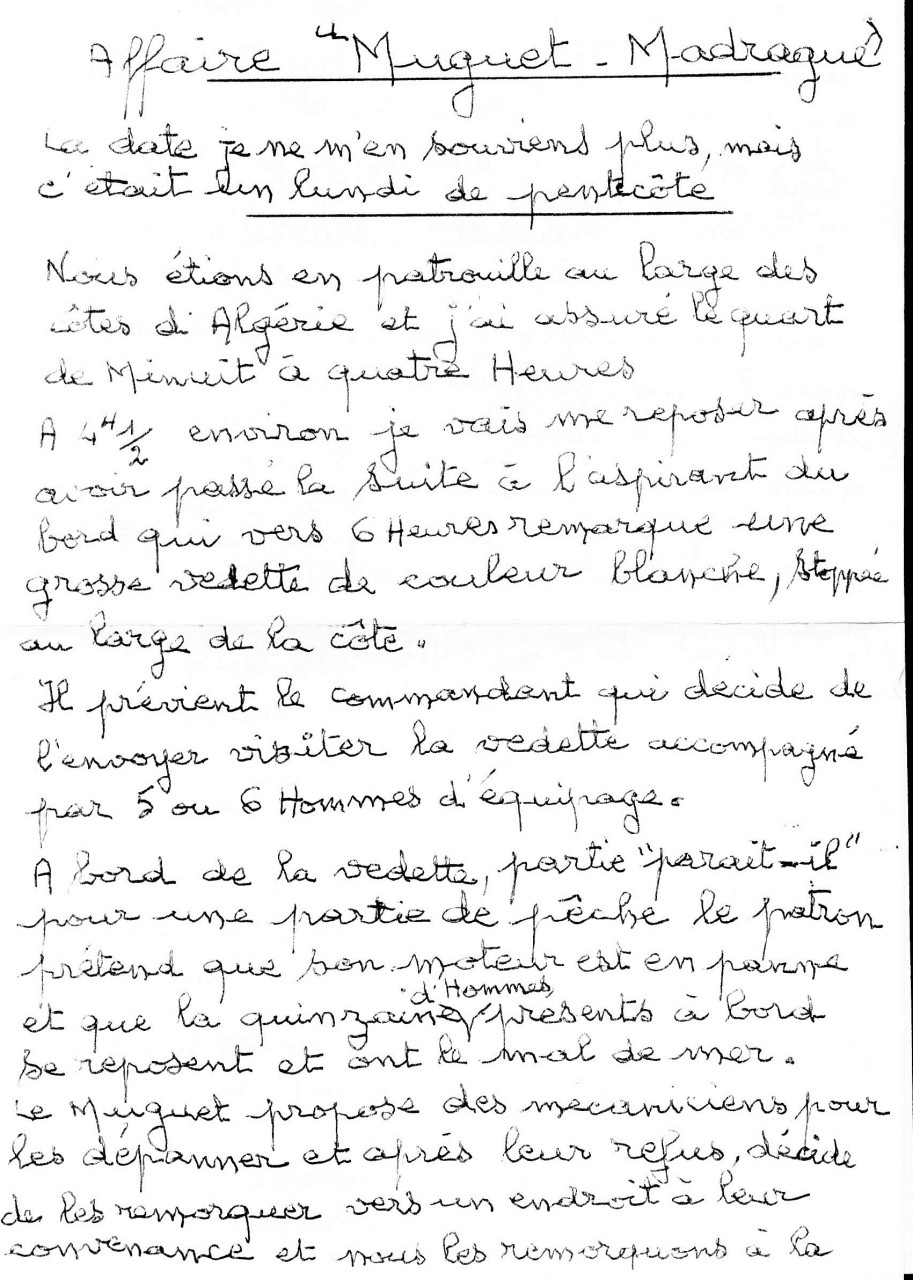 Affaire "Muguet - Madrague"
La date je ne m'en souviens plus, mais
c'était un lundi de pentecôte
Nous étions en patrouille au large des
côtes d'Algérie et j'ai assuré le quart
de Minuit à quatre Heures
A 4H 1/2 environ je vais me reposer après
avoir passé la suite à l'aspirant du
bord qui vers 6 Heures remarque une
grosse vedette de couleur blanche, stoppée
au large de la côte.
Il prévient le commandant qui décide de
l'envoyer visiter la vedette accompagné
par 5 ou 6 Hommes d'équipage.
A bord de la vedette, partie "parait-il"
pour une partie de pêche le patron
prétend que son moteur est en panne
et que la quinzaine d'Hommes présents à bord
se reposent et ont le mal de mer.
Le Muguet propose des mécaniciens pour
les dépanner et après leur refus, décide
de les remorquer vers un endroit à leur
convenance et nous les remorquons à la